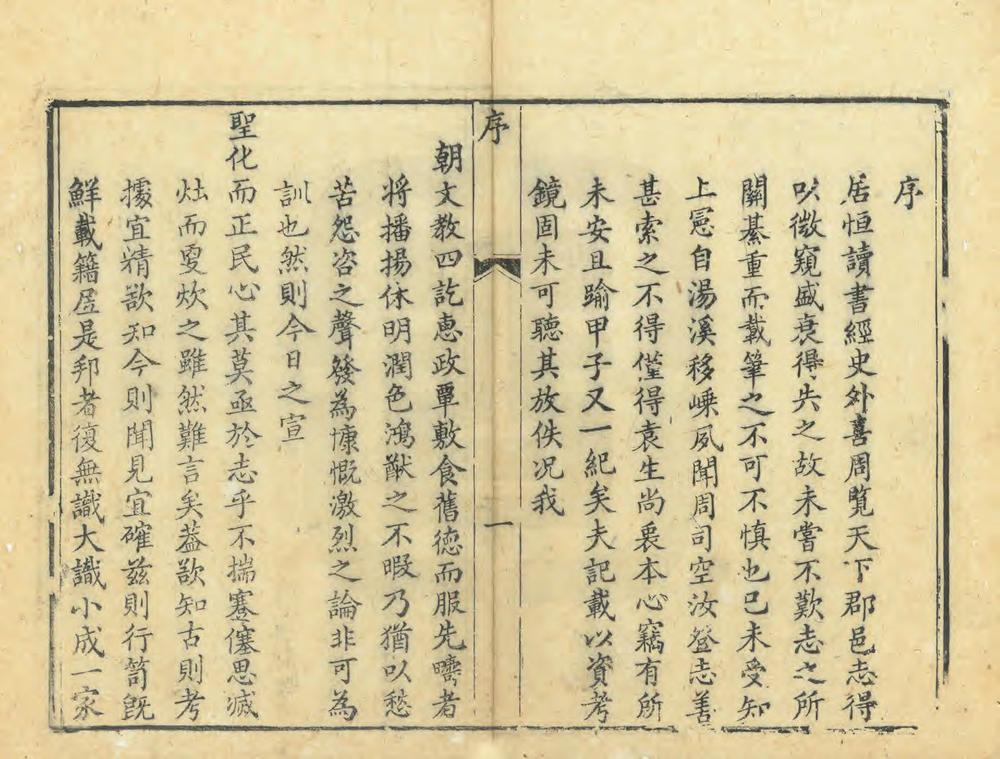 序
居恒讀書經史外喜周覽天下郡邑志得
以微窺盛衰得失之故未嘗不歎志之所
關綦重而載筆之不可不慎也己未受知
上憲自湯溪移嵊夙聞周司空汝登志善
甚索之不得僅得袁生尚衷本心竊有所
未安且踰甲子又一紀矣夫記載以資考
鏡固未可聽其放佚况我
序
一
朝文教四訖恵政覃敷食舊德而服先疇者
将播揚休明潤色鴻猷之不暇乃猶以愁
苦怨咨之聲發為慷慨激烈之論非可為
訓也然則今日之宣
聖化而正民心其莫亟於志乎不揣蹇僿思滅
灶而更炊之雖然難言矣葢欲知古則考
據宜精欲知今則聞見宜確兹則行笥旣
鮮載籍居是邦者復無識大識小成一家